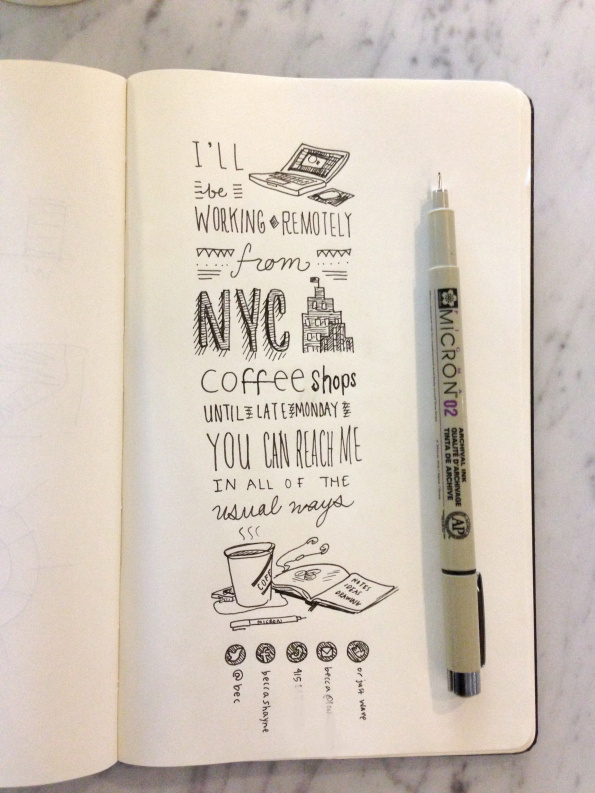 I'LL
be
WORKING REMOTELY
from
NYC
coffee shops
UNTIL LATE MONDAY
YOU CAN REACH ME
IN ALL OF THE
usual ways
COFFEE
NOTES
IDEAS
DRAWING
MICRON
@bec
beccashayne
415
becca@
or just wave
MICRON 02
ARCHIVAL INK
QUALITÉ D'ARCHIVAGE
TINTA DE ARCHIVE
AP